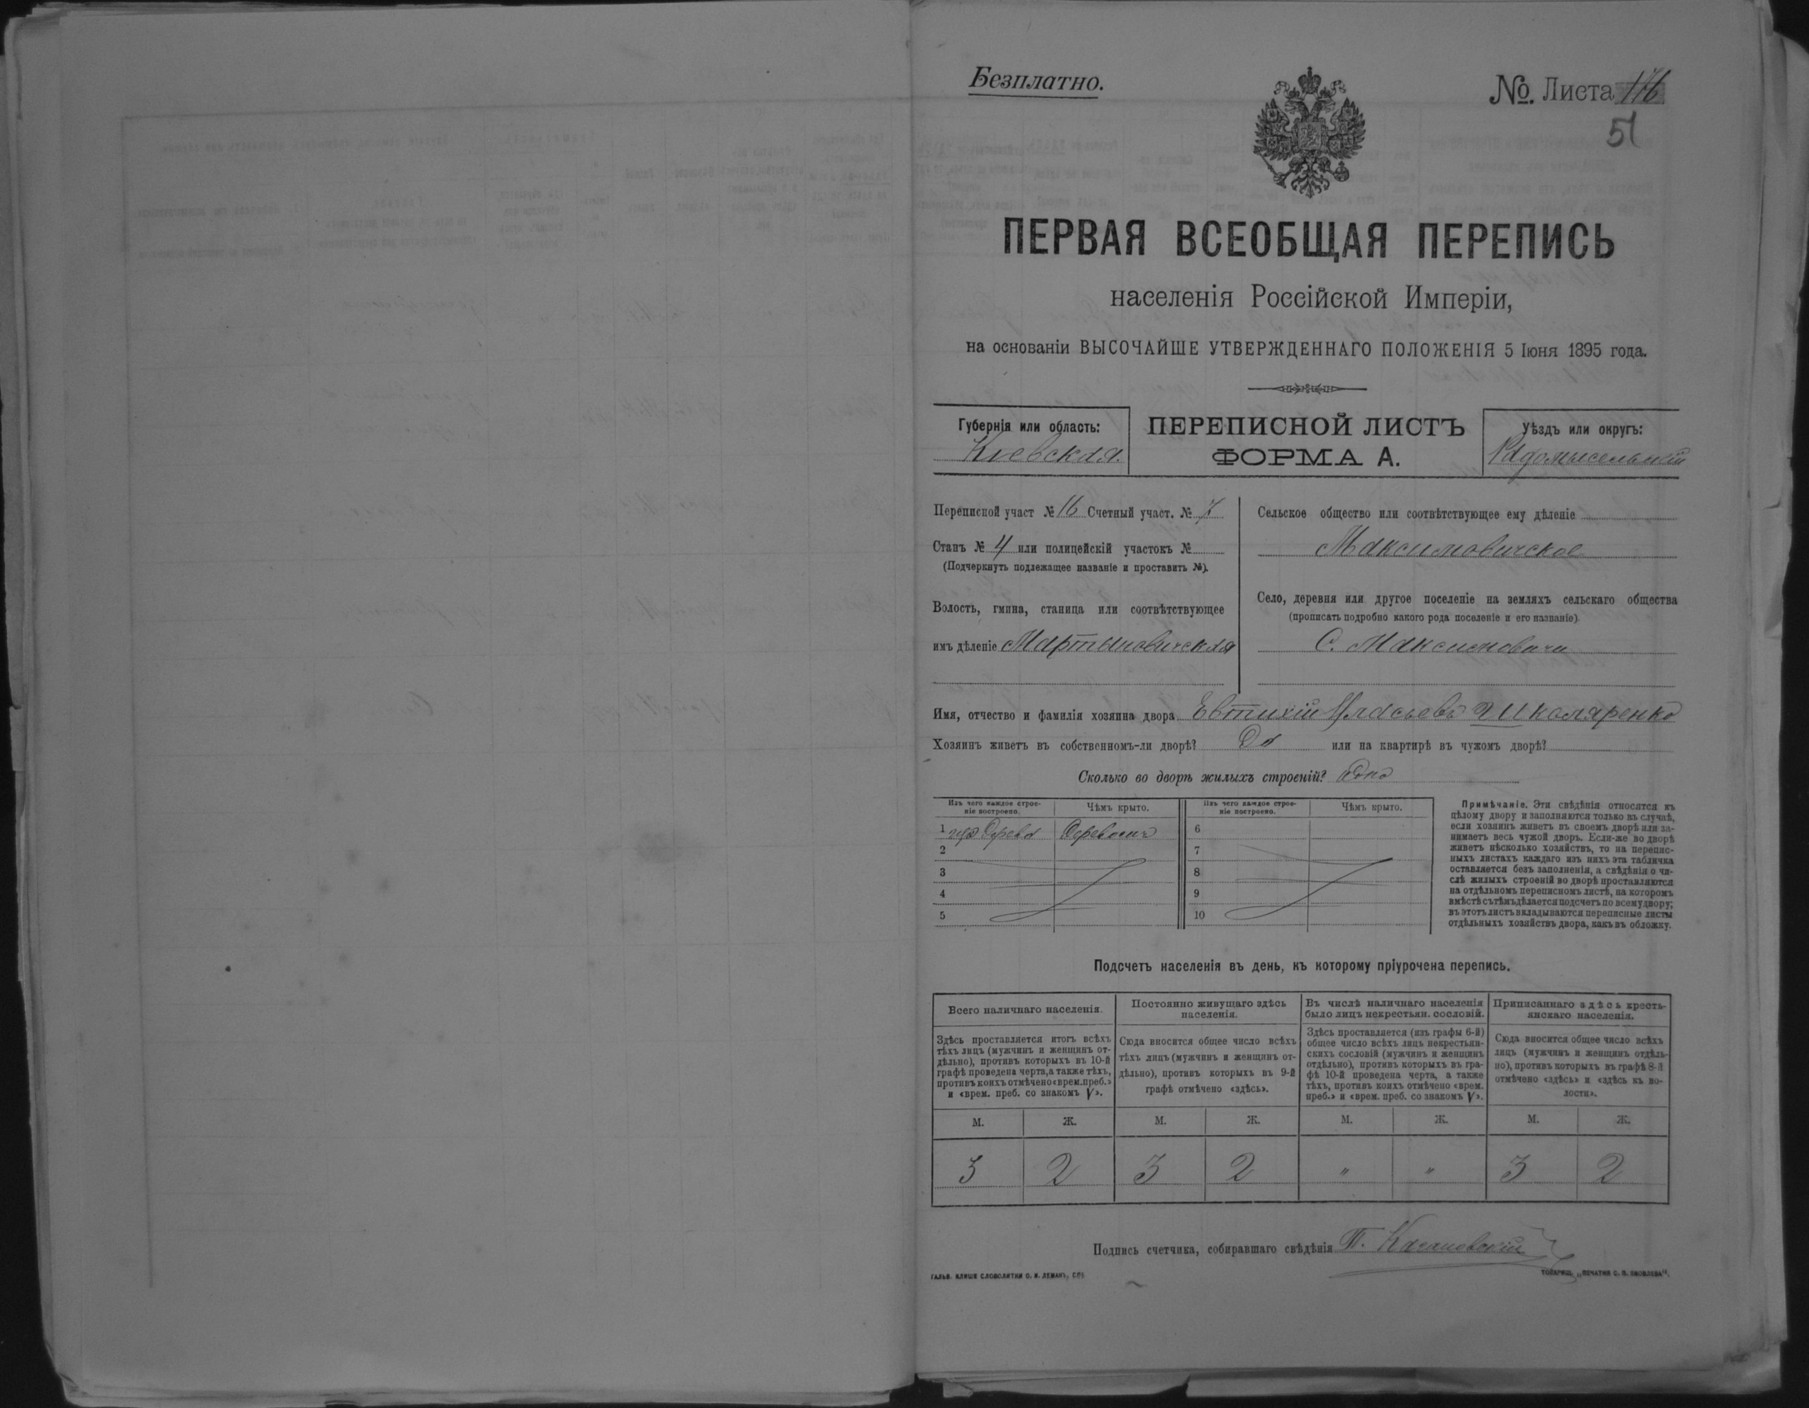 Безплатно.
№. Листа 116
51
ПЕРВАЯ ВСЕОБЩАЯ ПЕРЕПИСЬ
населенія Россійской Имперіи,
на основаніи ВЫСОЧАЙШЕ УТВЕРЖДЕННАГО ПОЛОЖЕНІЯ 5 Іюня 1895 года.
Губернія или область:
Кіевская.
ПЕРЕПИСНОЙ ЛИСТЪ
ФОРМА А.
Уѣздъ или округъ:
Радомысельскій
Переписной участ № 16 Счетный участ. № 7
Станъ № 4 или полицейскій участокъ №
(Подчеркнуть подлежащее названіе и проставить №).
Волость, гмина, станица или соотвѣтствующее
имъ дѣленіе Мартыновичская
Сельское общество или соотвѣтствующее ему дѣленіе
Максимовичское
Село, деревня или другое поселеніе на земляхъ сельскаго общества
(прописать подробно какого рода поселеніе и его названіе)
С. Максимовичи
Имя, отчество и фамилія хозяина двора Евтихій Власьевъ Школяренко
Хозяинъ живетъ въ собственномъ-ли дворѣ? Да или на квартирѣ въ чужомъ дворѣ?
Сколько во дворѣ жилыхъ строеній? Одно
Изъ чего каждое строе-
ніе построено.
Чѣмъ крыто.
Изъ чего каждое строе-
ніе построено.
Чѣмъ крыто.
1 изъ Дерева Деревомъ 6
2 7
3 8
4 9
5 10
Примѣчаніе. Эти свѣдѣнія относятся къ
цѣлому двору и заполняются только въ случаѣ,
если хозяинъ живетъ въ своемъ дворѣ или за-
нимаетъ весь чужой дворъ. Если-же во дворѣ
живетъ нѣсколько хозяйствъ, то на перепис-
ныхъ листахъ каждаго изъ нихъ эта табличка
оставляется безъ заполненія, а свѣдѣнія о чи-
слѣ жилыхъ строеній во дворѣ проставляются
на отдѣльномъ переписномъ листѣ, на которомъ
вмѣстѣ съ тѣмъ дѣлается подсчетъ по всему двору;
въ этотъ листъ вкладываются переписные листы
отдѣльныхъ хозяйствъ двора, какъ въ обложку.
Подсчетъ населенія въ день, къ которому пріурочена перепись.
Всего наличнаго населенія.
Здѣсь проставляется итогъ всѣхъ
тѣхъ лицъ (мужчинъ и женщинъ от-
дѣльно), противъ которыхъ въ 10-й
графѣ проведена черта, а также тѣхъ,
противъ коихъ отмѣчено «врем. преб.»
и «врем. преб. со знакомъ V».
Постоянно живущаго здѣсь
населенія.
Сюда вносится общее число всѣхъ
тѣхъ лицъ (мужчинъ и женщинъ от-
дѣльно), противъ которыхъ въ 9-й
графѣ отмѣчено «здѣсь».
Въ числѣ наличнаго населенія
было лицъ некрестьян. сословій.
Здѣсь проставляется (изъ графы 6-й)
общее число всѣхъ лицъ некрестьян-
скихъ сословій (мужчинъ и женщинъ
отдѣльно), противъ которыхъ въ гра-
фѣ 10-й проведена черта, а также
тѣхъ, противъ коихъ отмѣчено «врем.
преб.» и «врем. преб. со знакомъ V».
Приписаннаго здѣсь кресть-
янскаго населенія.
Сюда вносится общее число всѣхъ
лицъ (мужчинъ и женщинъ отдѣль-
но), противъ которыхъ въ графѣ 8-й
отмѣчено «здѣсь» и «здѣсь къ во-
лости».
М. Ж. М. Ж. М. Ж. М. Ж.
3 2 3 2 " " 3 2
Подпись счетчика, собиравшаго свѣдѣнія П.
ГАЛЬВ. КЛИШЕ СЛОВОЛИТНИ О. И. ЛЕМАНЪ, СПБ.
ТОВАРИЩ. „ПЕЧАТНЯ С. П. ЯКОВЛЕВА".